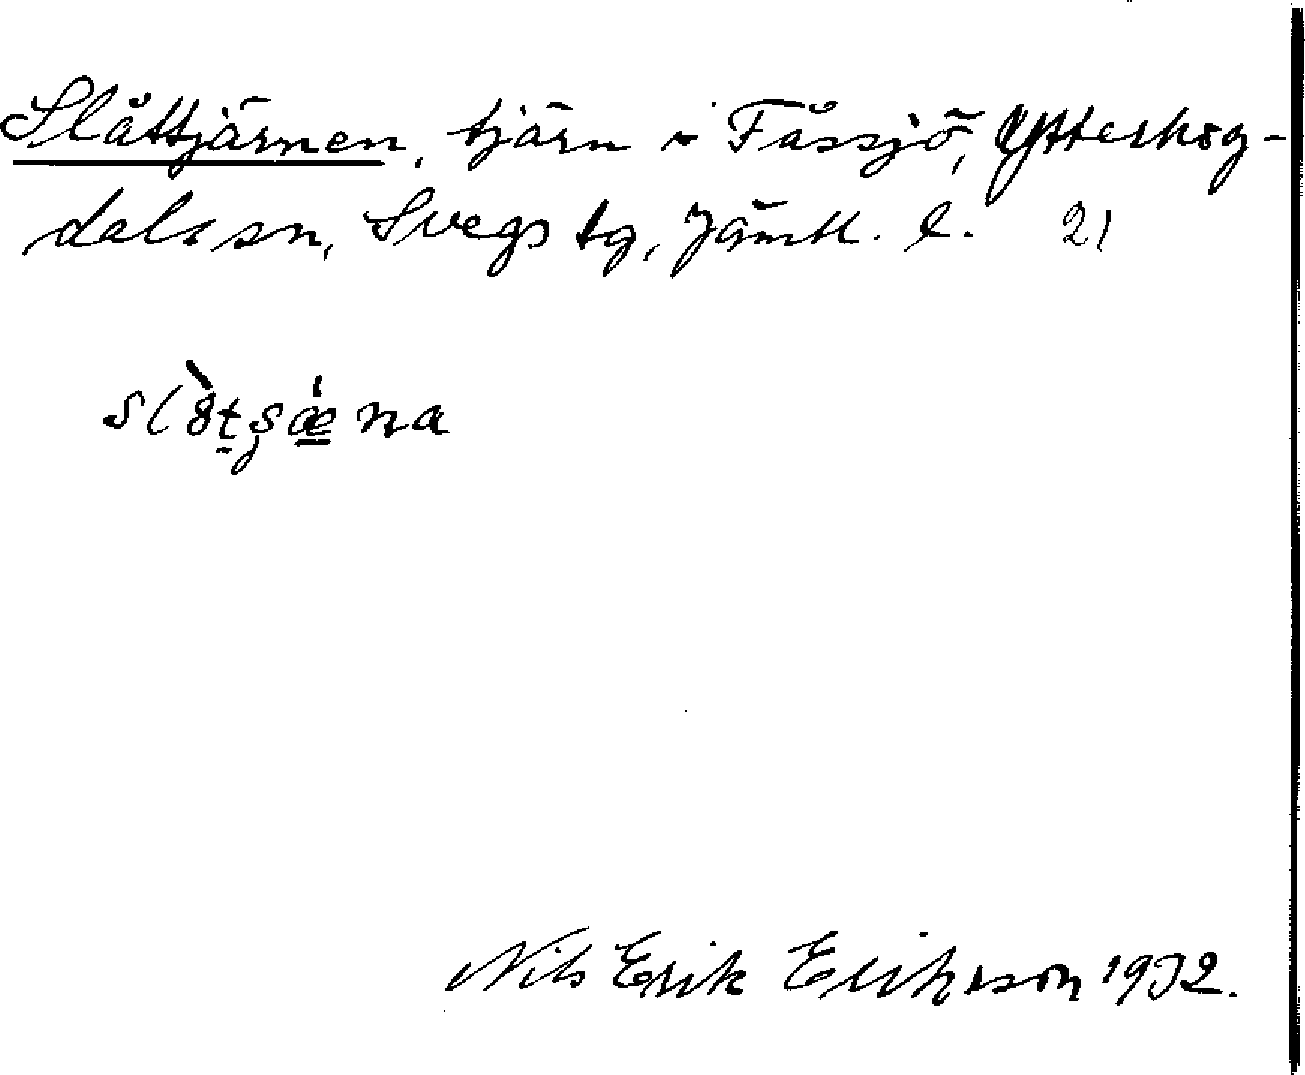 Slåttjärnen, tjärn i Fåssjö, Ytterhog-
dals sn, Svegs tg, Jämtl. l. 21
Nils Erik Eriksson 1932.